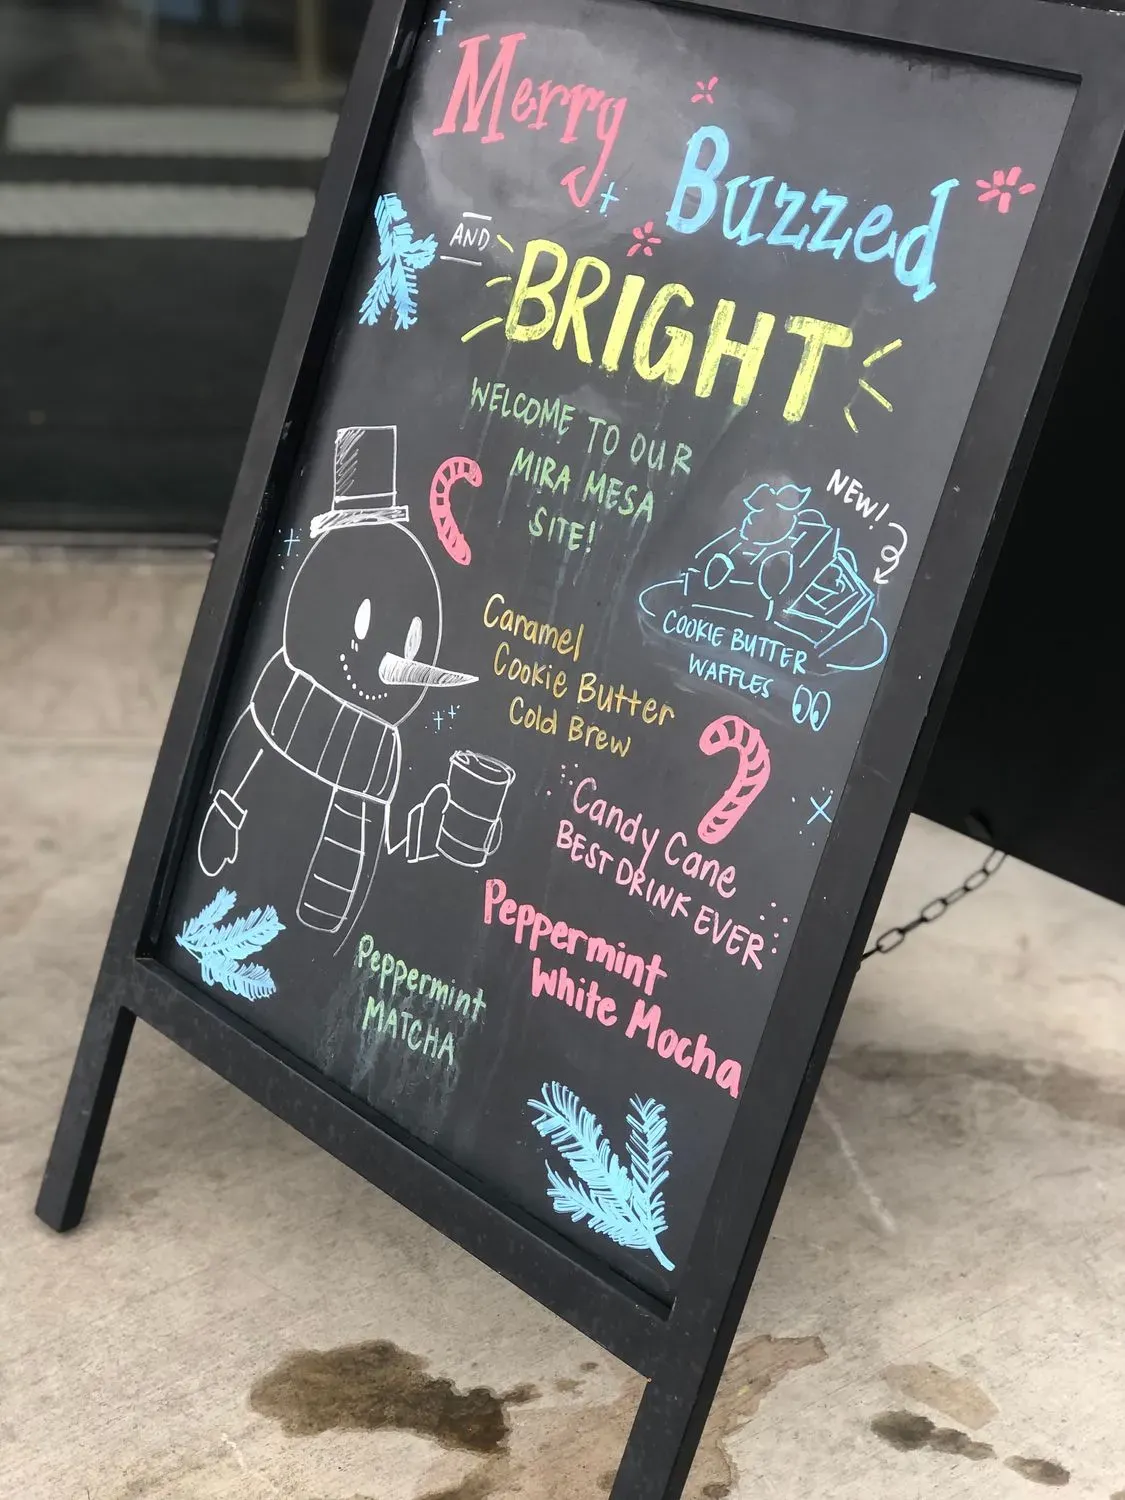 Merry
Buzzed
AND
BRIGHT
WELCOME TO OUR
MIRA MESA
SITE!
NEW!
COOKIE BUTTER
WAFFLES
Caramel
Cookie Butter
Cold Brew
Candy Cane
BEST DRINK EVER
Peppermint
White Mocha
Peppermint
MATCHA